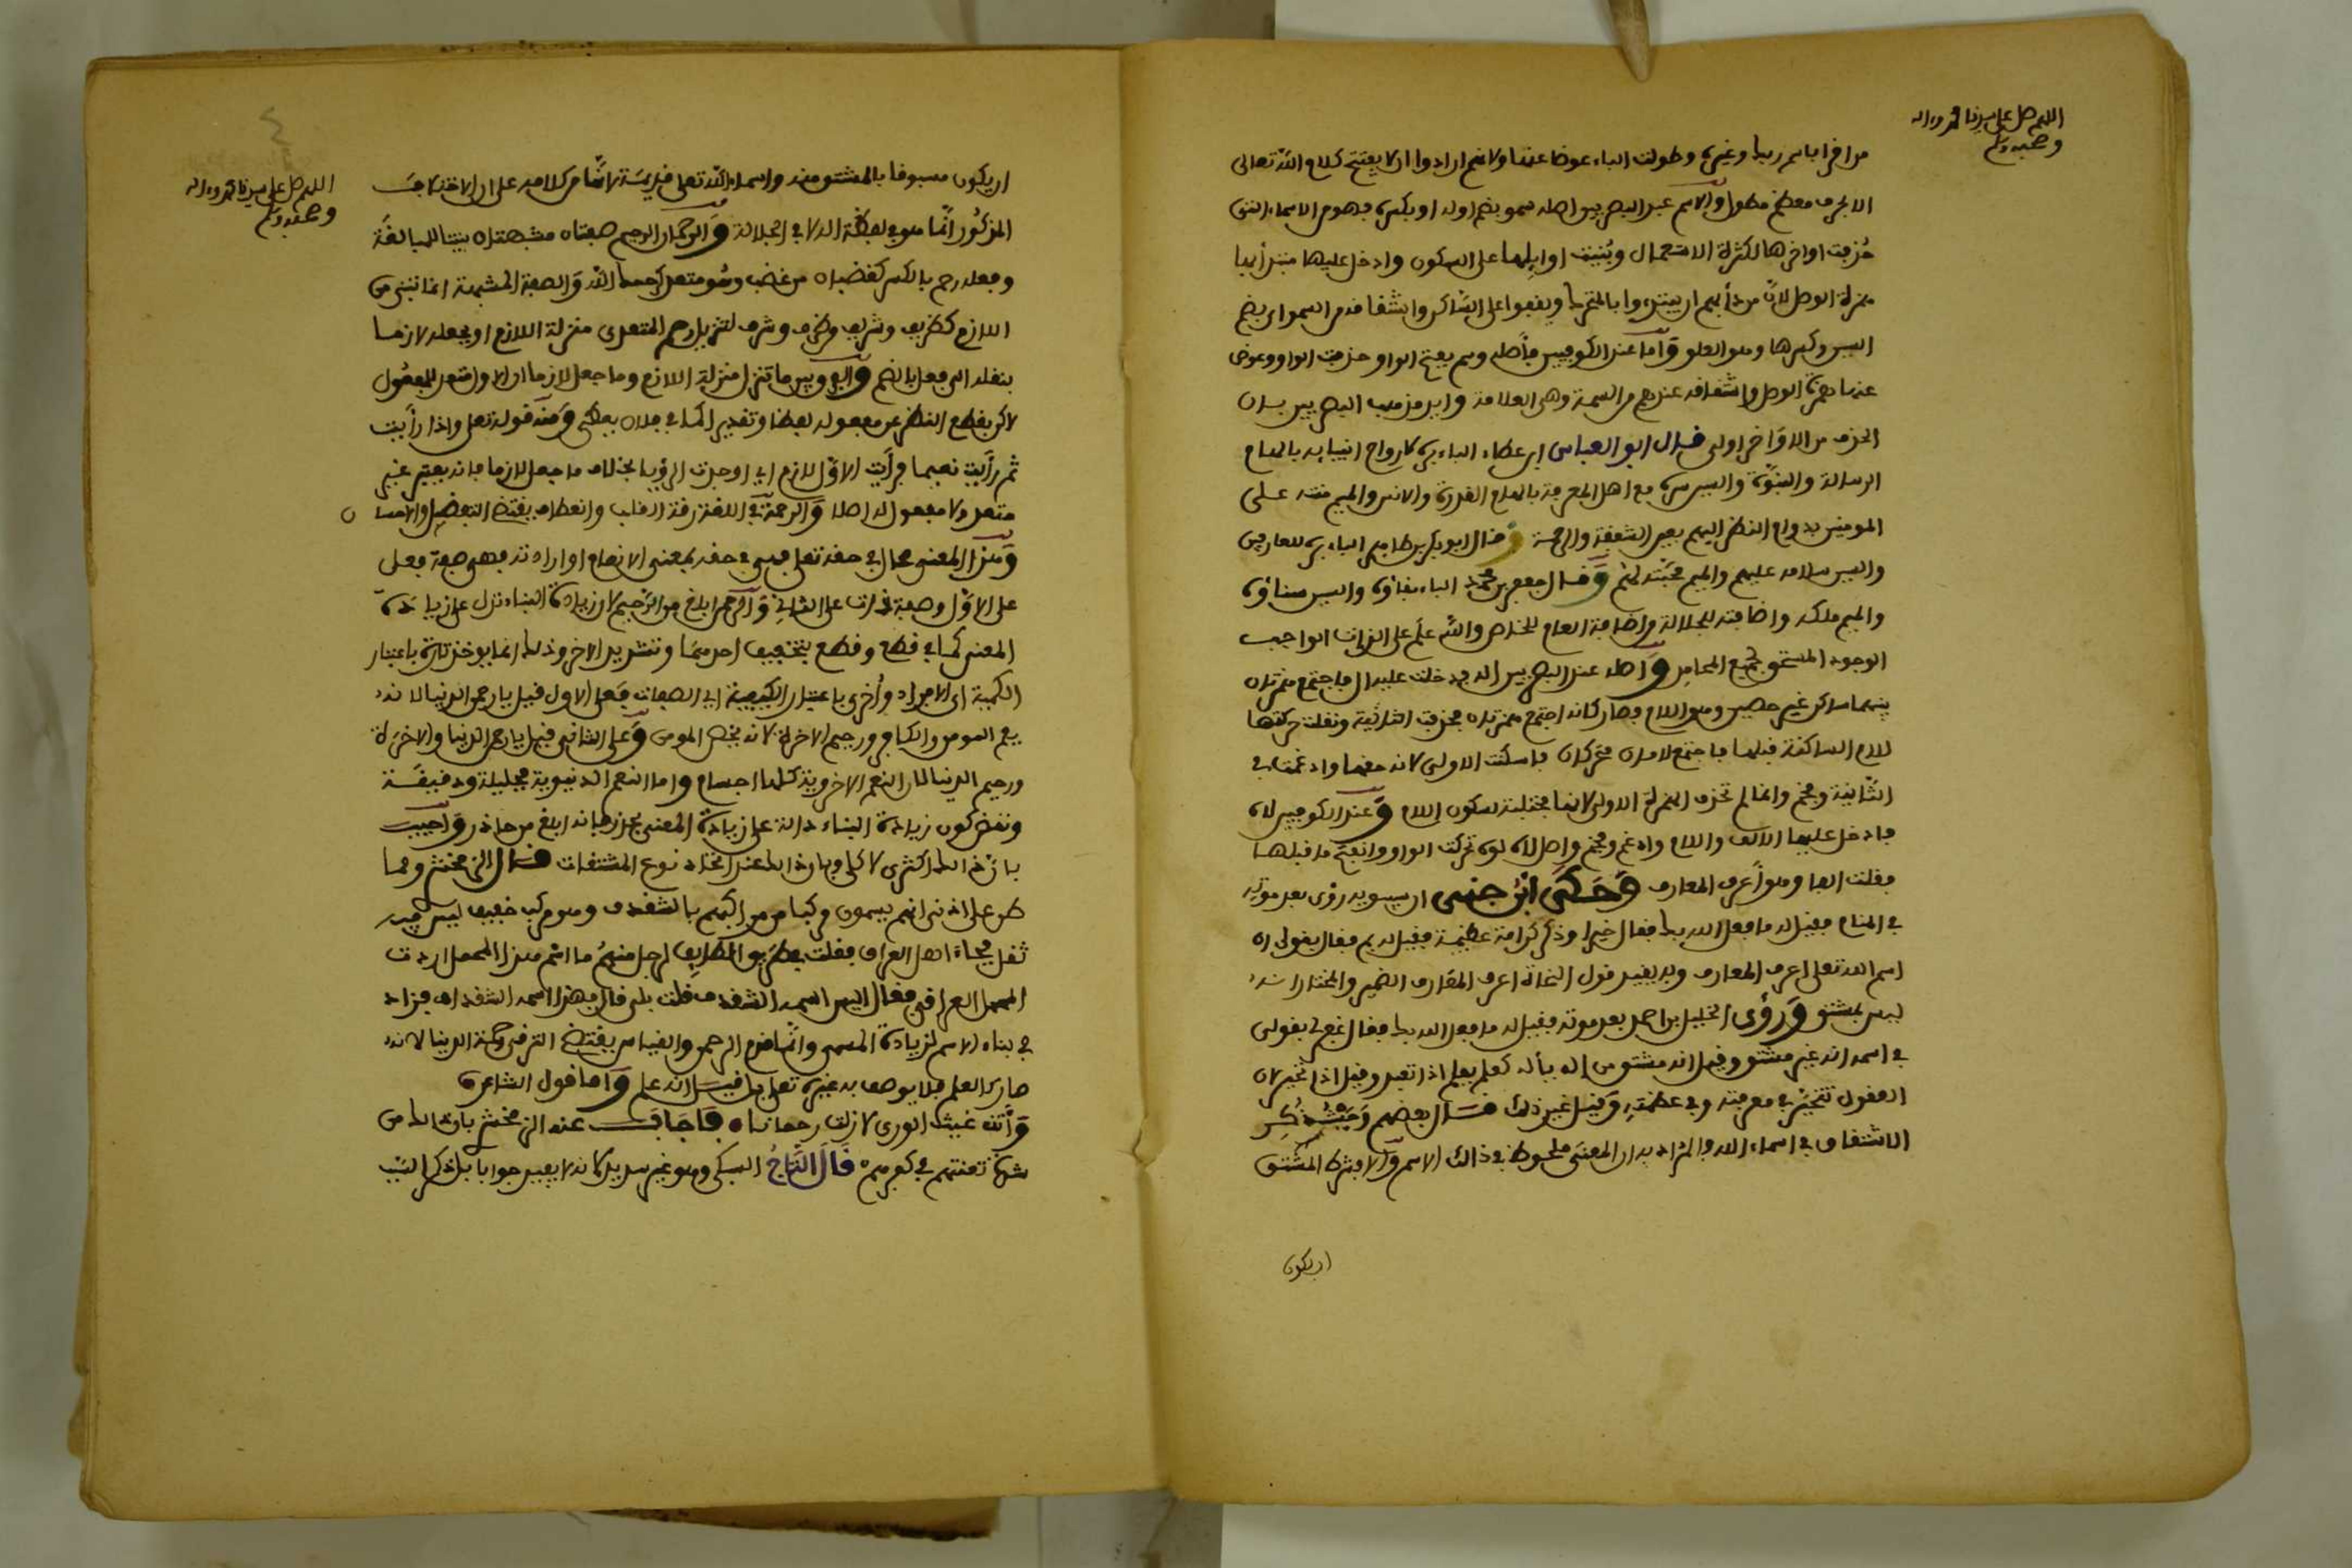 اللهم صل على سيدنا محمد وءاله
وصحبه وسلم
من اقرا باسم ربك وغيره وطولت الباء عوضا عنها ولانهم ارادوا ان لا يفتتح كلام الله تعالى
الا بحرف معظم مطول والاسم عند البصريين اصله سمو بضم اوله او بكسره فهو من الاسماء التى
حذفت اواخرها لكثرة الاستعمال وبنيت اوايلها على السكون وادخل عليها مبتدأ بها
همزة الوصل لان من دأبهم ان يبتدءوا بالمتحرك ويقفوا على الساكن واشتقاقه من السمو اى بضم
السين وكسرها وهو العلو واما عند الكوفيين فأصله وسم بفتح الواو حذفت الواو وعوض
عنها همزة الوصل واشتقاقه عندهم من السمة وهى العلامة وايد مذهب البصريين بان
الحذف من الاواخر اولى قال ابو العباس ابن عطاء الباء بره لارواح انبيايه بالهام
الرسالة والنبوة والسين سره مع اهل المعرفة بالهام القربة والانس والميم منته على
المومنين بدوام النظر اليهم بعين الشفقة والرحمة وقال ابو بكر بن طاهر الباء بره للعارفين
والسين سلامه عليهم والميم محبته لهم وقال جعفر بن محمد الباء بقاؤه والسين سناؤه
والميم ملكه واضافته للجلالة من اضافة العام للخاص والله علم على الذات الواجب
الوجود المستحق لجميع المحامد واصله عند البصريين اله فدخلت عليه ال فاجتمع همزتان
بينهما ساكن غير حصين وهو اللام فصار كانه اجتمع همزتان فحذفت الثانية ونقلت حركتها
للام الساكنة قبلها فاجتمع لامان متحركان فاسكنت الاولى لانه حقها وادغمت فى
الثانية وفخم وانما لم تحذف الهمزة الاولى لانها مجتلبة لسكون اللام وعند الكوفيين لاه
فادخل عليها الالف واللام وادغم وفخم واصل لاه لوه تحركت الواو وانفتح ما قبلها
فقلبت الفا وهو أعرف المعارف وحكى ابن جنى ان سيبويه رؤى بعد موته
فى المنام فقيل له ما فعل الله بك فقال خيرا وذكر كرامة عظيمة فقيل له بم فقال بقولى ان
اسم الله تعالى اعرف المعارف وبه يقيد قول النحاة اعرف المعارف الضمير والمختار انه
ليس بمشتق ورؤى الخليل بن احمد بعد موته فقيل له ما فعل الله بك فقال غفر لى بقولى
فى اسمه انه غير مشتق وقيل انه مشتق من اله يأله كعلم يعلم اذا تعبد وقيل اذا تحير لان
العقول تتحير فى معرفته وفى عظمته وقيل غير ذلك قال بعضهم وحيث ذكر
الاشتقاق فى اسماء الله فالمراد به ان المعنى ملحوظ فى ذالك الاسم والا فشرط المشتق
ان يكون
اللهم صل على سيدنا محمد وءاله
وصحبه وسلم
ان يكون مسبوقا بالمشتق منه واسماء الله تعلى قديمة لانها من كلامه على ان الاختلاف
المذكور انما هو فى لفظة اله لا فى الجلالة والرحمان الرحيم صفتان مشبهتان بنيتا للمبالغة
وفعله رحم بالكسر كغضبان من غضب وهو متعد كرحمه الله والصفة المشبهة انما تبنى من
اللازم كظريف وشريف من ظرف وشرف لتنزيل رحم المتعدى منزلة اللازم او بجعله لازما
بنقله الى فعل بالضم والفرق بين ما تنزل منزلة اللازم وما جعل لازما ان الاول متعد للمفعول
لاكن يقطع النظر عن مفعوله لفظا وتقديرا كما فى فلان يعطى ومنه قوله تعلى واذا رأيت
ثم رأيت نعيما فرأيت الاول لازم اى اوجدت الرؤيا بخلاف ما جعل لازما فانه يعتبر غير
متعد ولا مفعول له اصلا والرحمة فى اللغة رقة القلب وانعطاف يقتضى التفضل والاحسان
وهذا المعنى محال فى حقه تعلى فهى فى حقه بمعنى الانعام او ارادته فهى صفة فعل
على الاول وصفة ذات على الثانى والرحمن ابلغ من الرحيم لان زيادة البناء تدل على زيادة
المعنى كما فى قطع وقطع بتخفيف احدهما وتشديد الاخر وذلك انما يوخذ تارة باعتبار
الكمية اى الافراد وأخرى باعتبار الكيفية اى الصفات فعلى الاول قيل يا رحمن الدنيا لانه
يعم المومن والكافر ورحيم الاخرة لانه يخص المومن وعلى الثانى قيل يا رحمن الدنيا والاخرة
ورحيم الدنيا لان النعم الاخروية كلها اجسام واما النعم الدنيوية فجليلة ودقيقة
ونقض كون زيادة البناء دالة على زيادة المعنى بحذر فانه ابلغ من حاذر واجيب
بان ذالك اكثرى لا كلى وبان ذالك عند اتحاد نوع المشتقات قال الزمخشرى ومما
طن على اذنى انهم يسمون مركبا من مراكبهم بالشقدف وهو مركب خفيف ليس فيه
ثقل محامل اهل العراق فقلت بطريق الطايف لرجل منهم ما اسم هذا المحمل اردت
المحمل العراقى فقال اليس اسمه الشقدف قلت بلى قال فهذا اسمه الشقنداف فزاد
فى بناء الاسم لزيادة المسمى وانما قدم الرحمن والقياس يقتضى الترقى لانه
صار كالعلم فلا يوصف به غيره تعلى بل قيل انه علم واما قول الشاعر
وانت غيث الورى لا زلت رحمانا فاجاب عنه الزمخشرى بان ذالك من
شدة تعنتهم فى كفرهم قال التاج السبكى وهو غير سديد لانه لا يفيد جوابا بل ذكر السبب